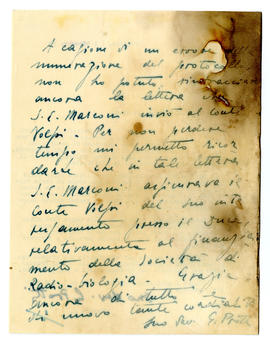 A cagione di un errore nel
numerazione del protocollo
non ho potuto rintracciare
ancora la lettera che
S. E. Marconi inviò al conte
Volpi. Per non perdere
tempo mi permetto ricor
darle che in tale lettera
S. E. Marconi assicurava il
conte Volpi del suo inte
ressamento presso il Duce
relativamente al finanzia
mento della Società di
Radio-biologia. Grazie
ancora di tutto e
di nuovo tante cordialità
Suo dev.